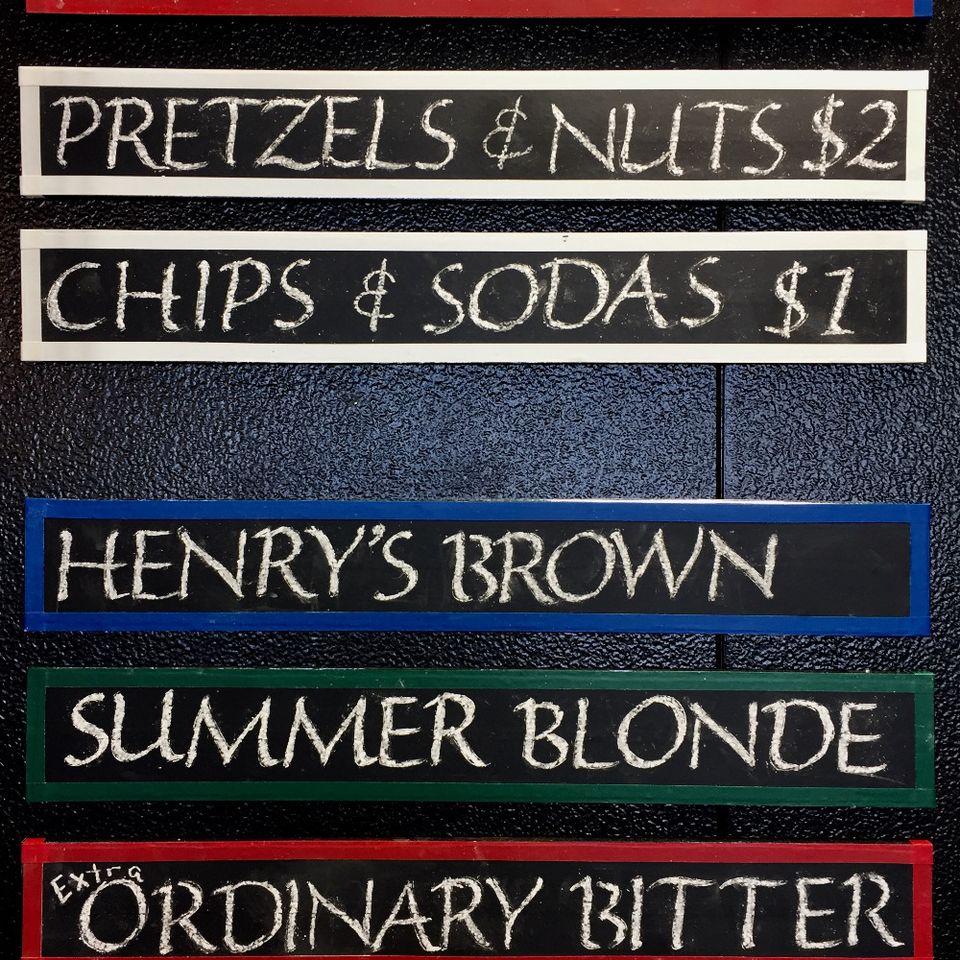 PRETZELS & NUTS $2
CHIPS & SODAS $1
HENRY'S BROWN
SUMMER BLONDE
Extra ORDINARY BITTER